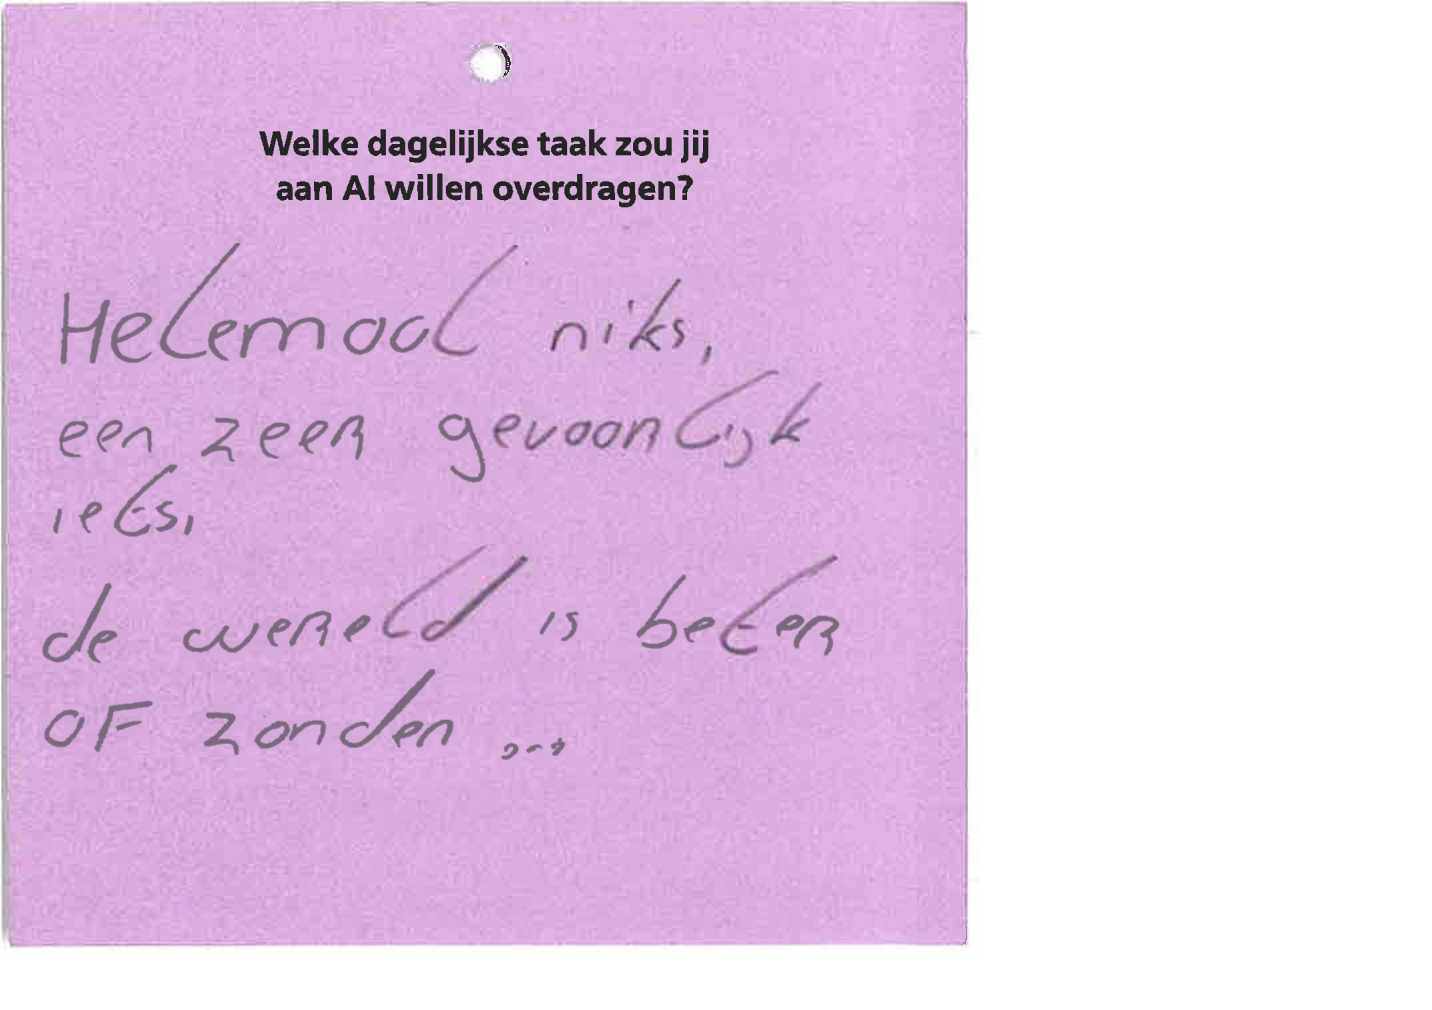 Welke dagelijkse taak zou jij
aan AI willen overdragen?
Helemaal niks,
een zeer gevaarlijk
iets,
de wereld is beter
of zonder ...